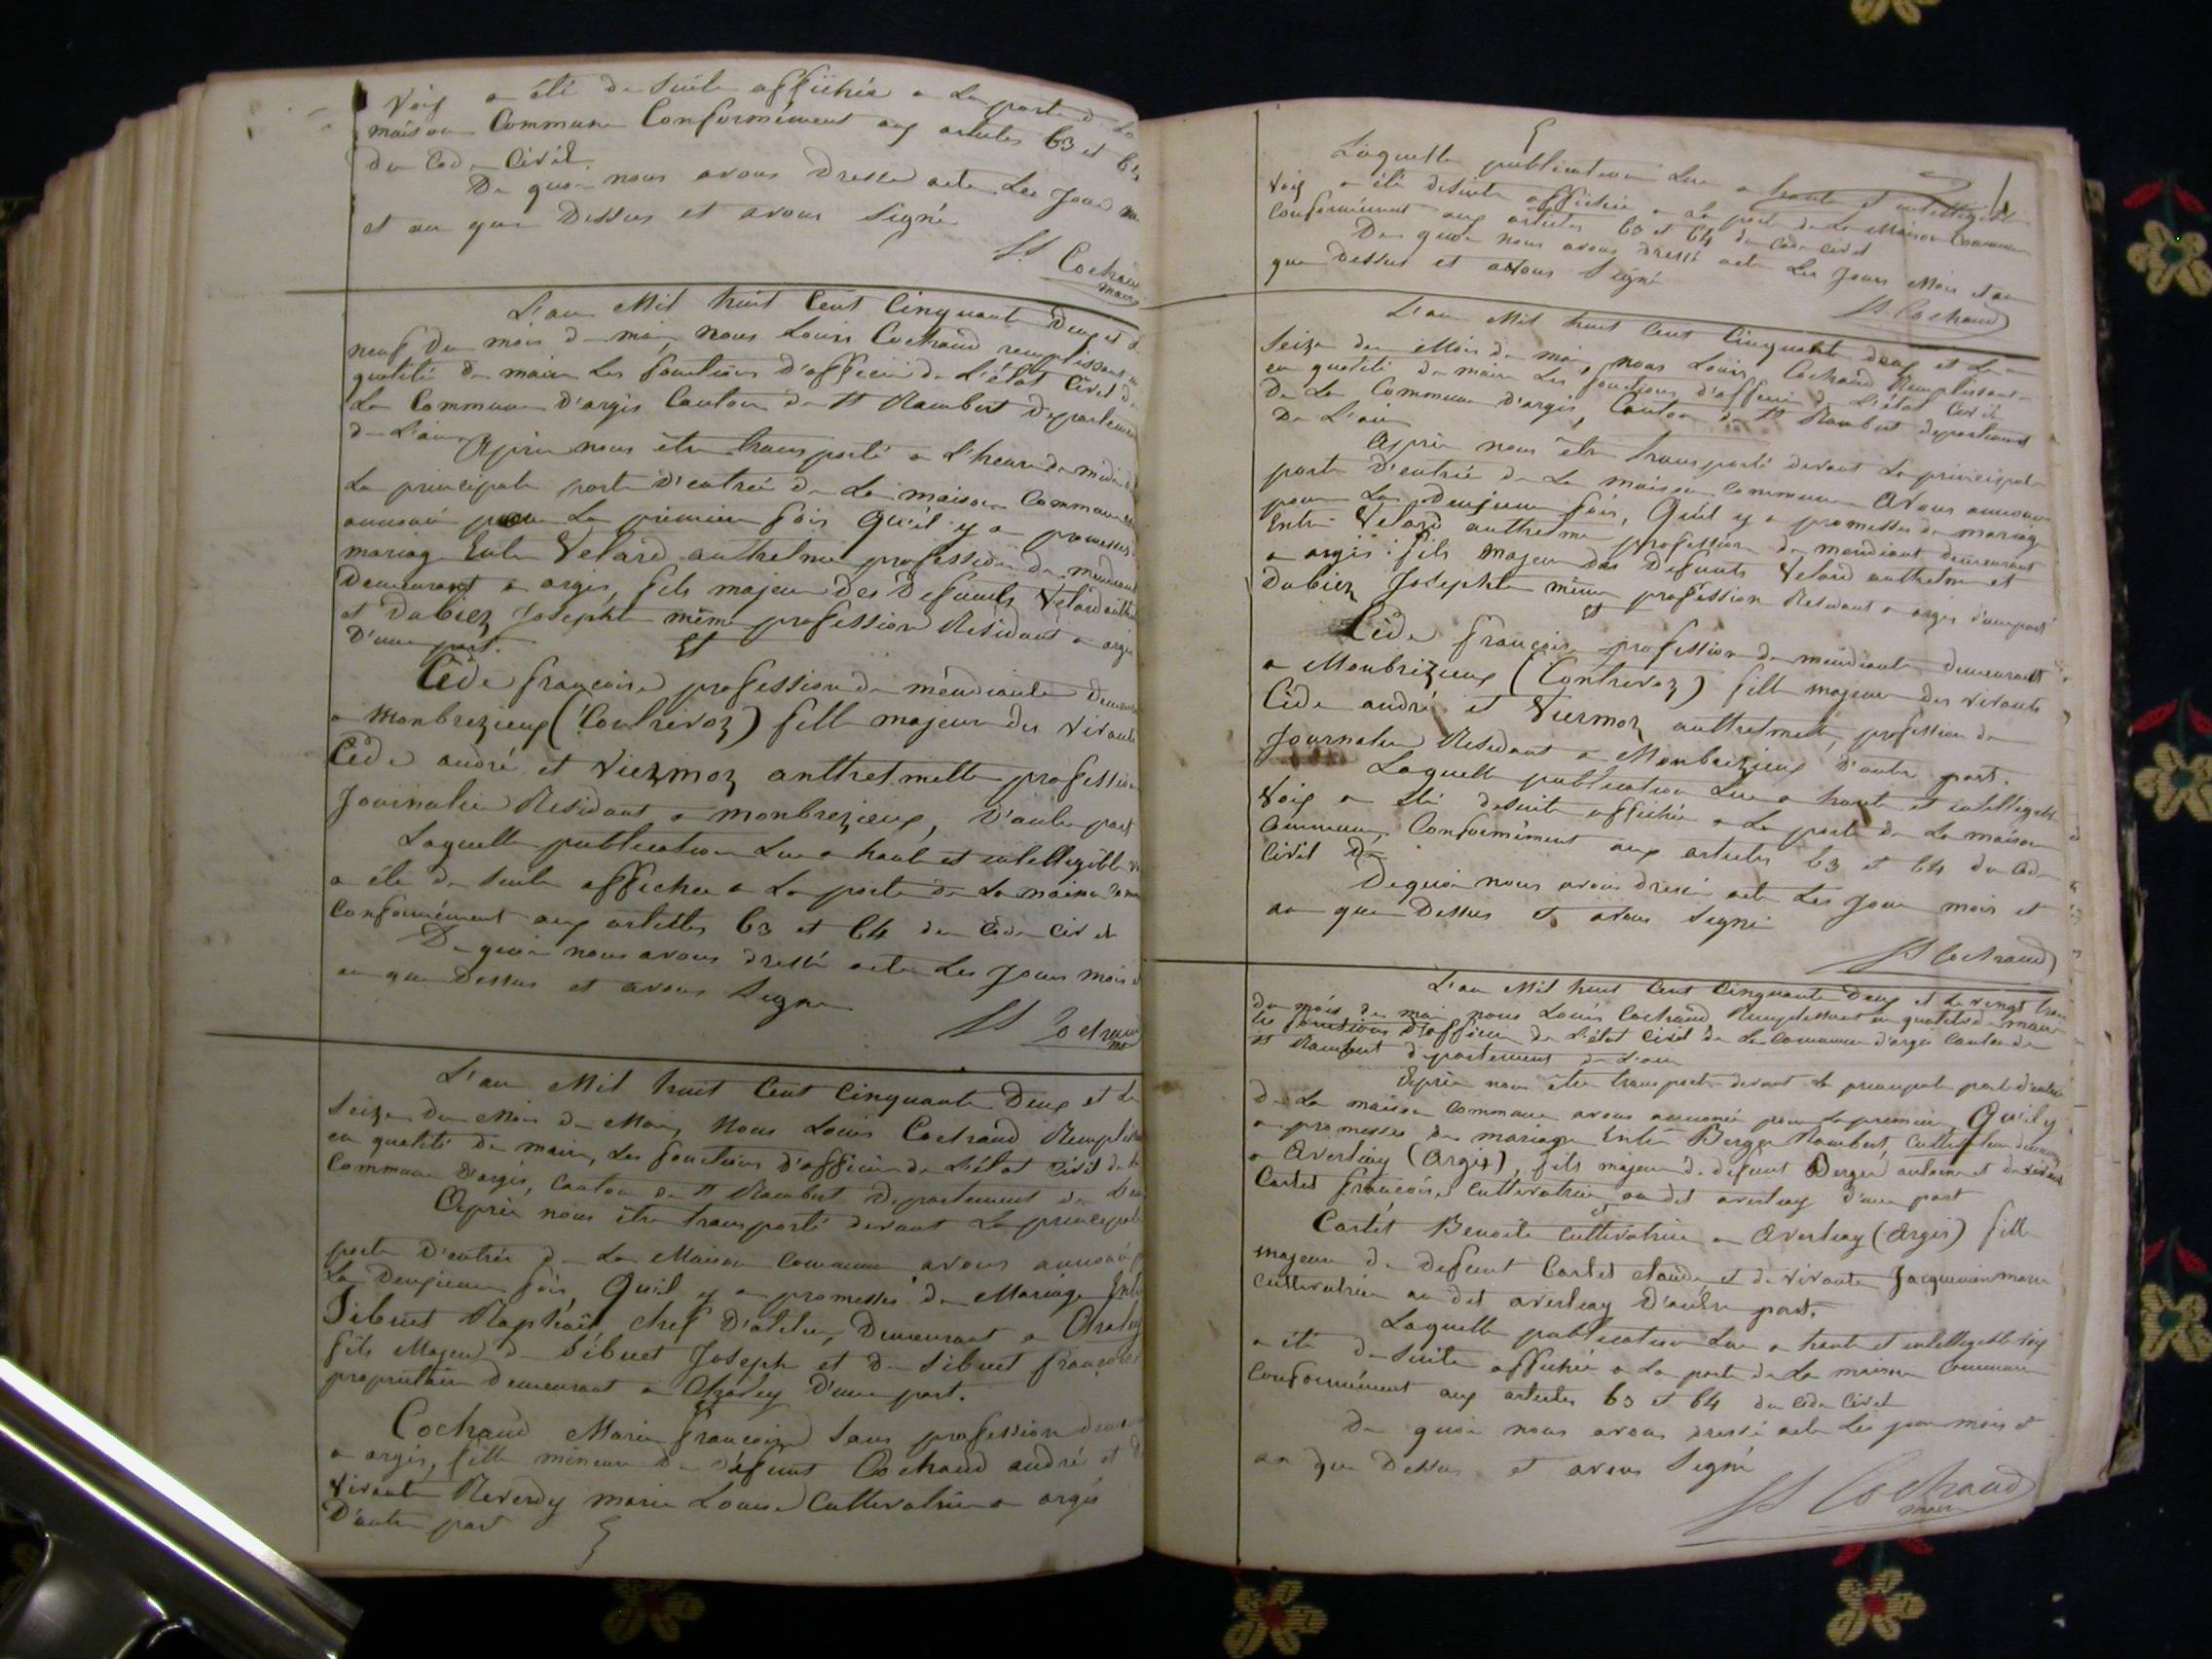 voix a été de suite affichée a la porte d la
maison Commune Conformément aux articles 63 et 64
du Code Civil.
De quoi nous avons Dressé acte les Jour
et an que Dessus et avons Signé
Ls Cochaud
maire
L'an Mil huit Cent Cinquante Deux et
neuf Du mois de mai, nous Louis Cochaud remplissant
qualité de maire les fonctions d'officier de L'état Civil d
La Commune d'argis Canton de St Rambert Departement
de L'ain
Après nous être transporté a L'heure de midi
La principale porte D'entrée de La maison Commune
annoncé pour La premiere fois Qu'il y a promesses
mariage Entre Velard anthelme profession de mendiant
Demeurant a argis, fils majeur Des Defunts Velard anthel
et Dubiez Josephte même profession Résidant a argis
D'une part. Et
Cède françoise profession de mendiante Demeura
a Monbrezieux (Contrevoz) fille majeure des vivants
Cède andré et Viezmoz anthelmette profession
Journalier Residant a monbrezieux, D'autre part
Laquelle publication lue a haute et intelligible
a été de suite affichée a La porte de La maison
Conformément aux articles 63 et 64 du Code Civil
De quoi nous avons dressé acte les Jour mois
an que Dessus et avons Signé
Ls Cochaud
L'an Mil huit Cent Cinquante Deux et le
Seize du Mois de Mai, Nous Louis Cochaud Remplis
en qualité de maire, les fonctions d'officier de L'état Civil de la
Commune d'argis, Canton de St Rambert Departement de L'ain
Après nous être transporté devant La principale
porte D'entrée de La Maison Commune avons annoncé
La Deuxieme fois, Qu'il y a promesses de Mariage Entre
Sibuet Raphaël chef D'atelier, Demeurant a
fils Majeur de Sibuet Joseph et De Sibuet françoise
propriétaire demeurant a D'une part.
Et
Cochaud Marie françoise Sans profession
a argis, fille mineure De défunt Cochaud andré et
vivante Reverdy marie Louise Cultivatrice a argis
D'autre part
Laquelle publication lue a haute et intelligible
voix a été desuite affichée a La porte de La Maison Commune
Conformément aux articles 63 et 64 du Code Civil
De quoi nous avons dressé acte les Jours Mois et an
que Dessus et avons Signé
Ls Cochaud
L'an Mil huit Cent Cinquante deux et Le
Seize du Mois de mai, nous Louis Cochaud Remplissant
en qualité de maire Les fonctions d'officier de L'état Civil
De La Commune d'argis, Canton de St Rambert departement
De L'ain
Après nous être transporté devant La principale
porte D'entrée de La maison Commune Avons annoncé
pour La deuxieme fois, Qu'il y a promesses de mariage
Entre Velard anthelme profession de mendiant demeurant
a argis fils majeur des Defunts Velard anthelme et
Dubiez Josephte même profession Residant a argis d'une part
et
Cède françoise profession de mendiante demeurant
a Monbrizieux (Contrevoz) fille majeure des vivants
Cède andré et Viezmoz anthelmette, profession de
Journalier Residant a Monbrizieux D'autre part.
Laquelle publication lue a haute et intelligible
voix a été desuite affichée a La porte de La maison
Commune, Conformément aux articles 63 et 64 du Code
Civil
De quoi nous avons dressé acte Les Jour mois et
an que Dessus et avons Signé
Ls Cochaud
L'an Mil huit Cent Cinquante Deux et Le vingt trois
du mois de mai nous Louis Cochaud Remplissant en qualité de maire
les fonctions d'officier de L'état Civil de La Commune d'argis Canton de
St Rambert département de L'ain
Après nous être transporté devant La principale porte d'entrée
de La maison Commune avons annoncé pour La premiere, Qu'il y
a promesses de mariage Entre Berger Rambert, Cultivateur
a Averliay (Argis), fils majeur de defunt Berger antoine et de vivante
Cartet françoise Cultivatrice au dit averliay d'une part
et
Cartet Benoite Cultivatrice a Averliay (Argis) fille
majeure de deffunt Cartet claude et de vivante Jacquemin marie
Cultivatrice au dit averliay D'autre part.
Laquelle publication lue a haute et intelligible voix
a été de suite affichée a La porte de La maison Commune
Conformément aux articles 63 et 64 du Code Civil
De quoi nous avons dressé acte les jour mois et
an que Dessus et avons Signé
Ls Cochaud
maire